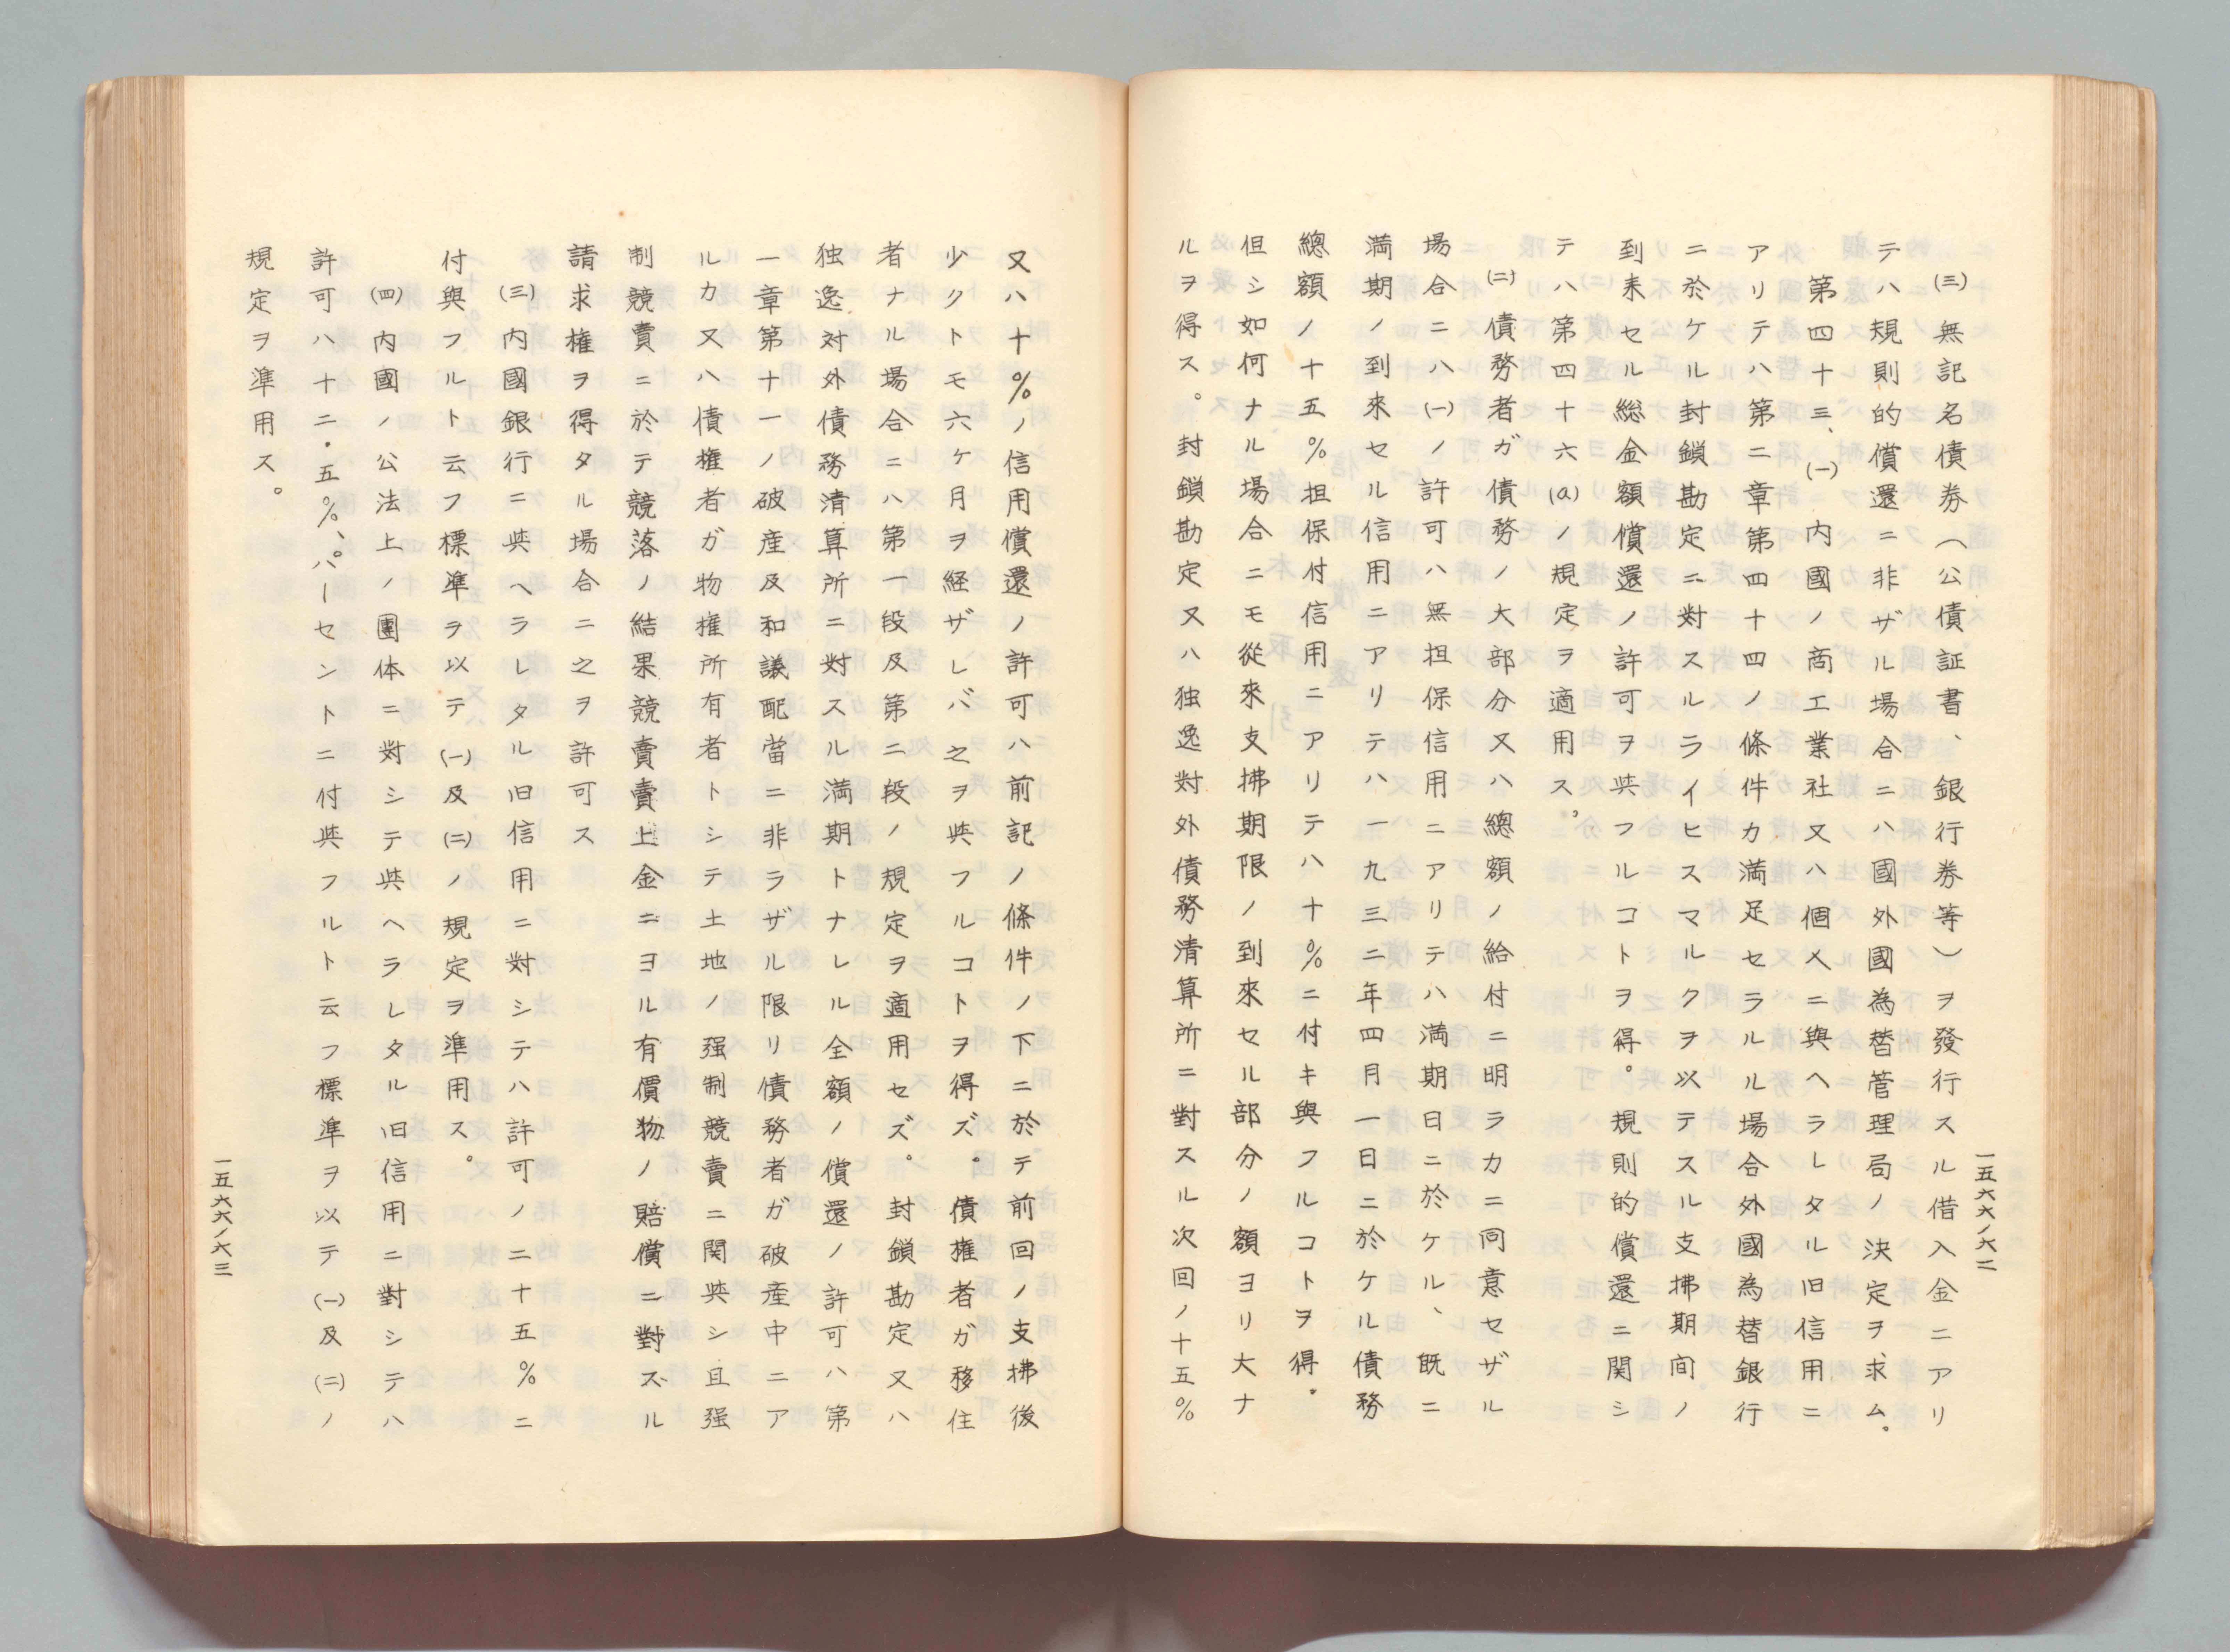 (三)無記名債券(公債証書、銀行券等)ヲ發行スル借入金ニアリ
テハ規則的償還ニ非ザル場合ニハ國外國為替管理局ノ決定ヲ求ム。
第四十三、(一)内國ノ商工業社又ハ個人ニ與ヘラレタル旧信用ニ
アリテハ第二章第四十四ノ條件カ満足セラルル場合外國為替銀行
ニ於ケル封鎖勘定ニ対スルライヒスマルクヲ以テスル支拂期间ノ
到来セル総金額償還ノ許可ヲ與フルコトヲ得。規則的償還ニ関シ
テハ第四十六(a)ノ規定ヲ適用ス。
(二)債務者ガ債務ノ大部分又ハ總額ノ給付ニ明ラカニ同意セザル
場合ニハ(一)ノ許可ハ無担保信用ニアリテハ満期日ニ於ケル、既ニ
満期ノ到來セル信用ニアリテハ一九三二年四月一日ニ於ケル債務
總額ノ十五%担保付信用ニアリテハ十%ニ付キ與フルコトヲ得。
但シ如何ナル場合ニモ從來支拂期限ノ到來セル部分ノ額ヨリ大ナ
ルヲ得ス。封鎖勘定又ハ独逸対外債務清算所ニ對スル次回ノ十五%
一五六六ノ六二
又ハ十%ノ信用償還ノ許可ハ前記ノ條件ノ下ニ於テ前回ノ支拂後
少クトモ六ケ月ヲ経ザレバ之ヲ與フルコトヲ得ズ。債権者ガ移住
者ナル場合ニハ第一段及第二段ノ規定ヲ適用セズ。封鎖勘定又ハ
独逸対外債務清算所ニ對スル満期トナレル全額ノ償還ノ許可ハ第
一章第十一ノ破産及和議配當ニ非ラザル限リ債務者ガ破産中ニア
ルカ又ハ債権者ガ物権所有者トシテ土地ノ强制競賣ニ関與シ且强
制競賣ニ於テ競落ノ結果競賣賣上金ニヨル有價物ノ賠償ニ對スル
請求権ヲ得タル場合ニ之ヲ許可ス
(三)内國銀行ニ與ヘラレタル旧信用ニ対シテハ許可ノ二十五%ニ
付與フルト云フ標準ヲ以テ(一)及(二)ノ規定ヲ準用ス。
(四)内國ノ公法上ノ團体ニ對シテ與ヘラレタル旧信用ニ對シテハ
許可ハ十二・五%、パーセントニ付與フルト云フ標準ヲ以テ(一)及(二)ノ
規定ヲ準用ス。
一五六六ノ六三